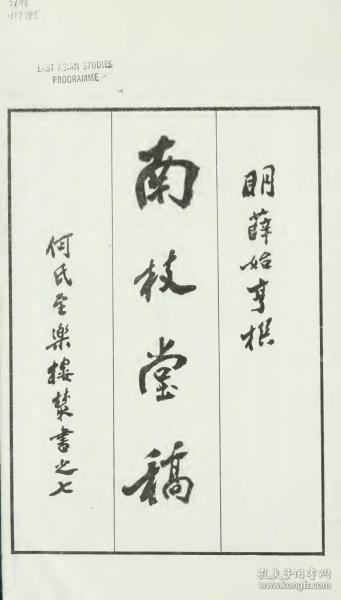 EAST ASIAN STUDIES
PROGRAMME
明薛始亨撰
南枝堂稿
何氏至樂樓叢書之七
孔夫子旧书网
www.kongfz.com